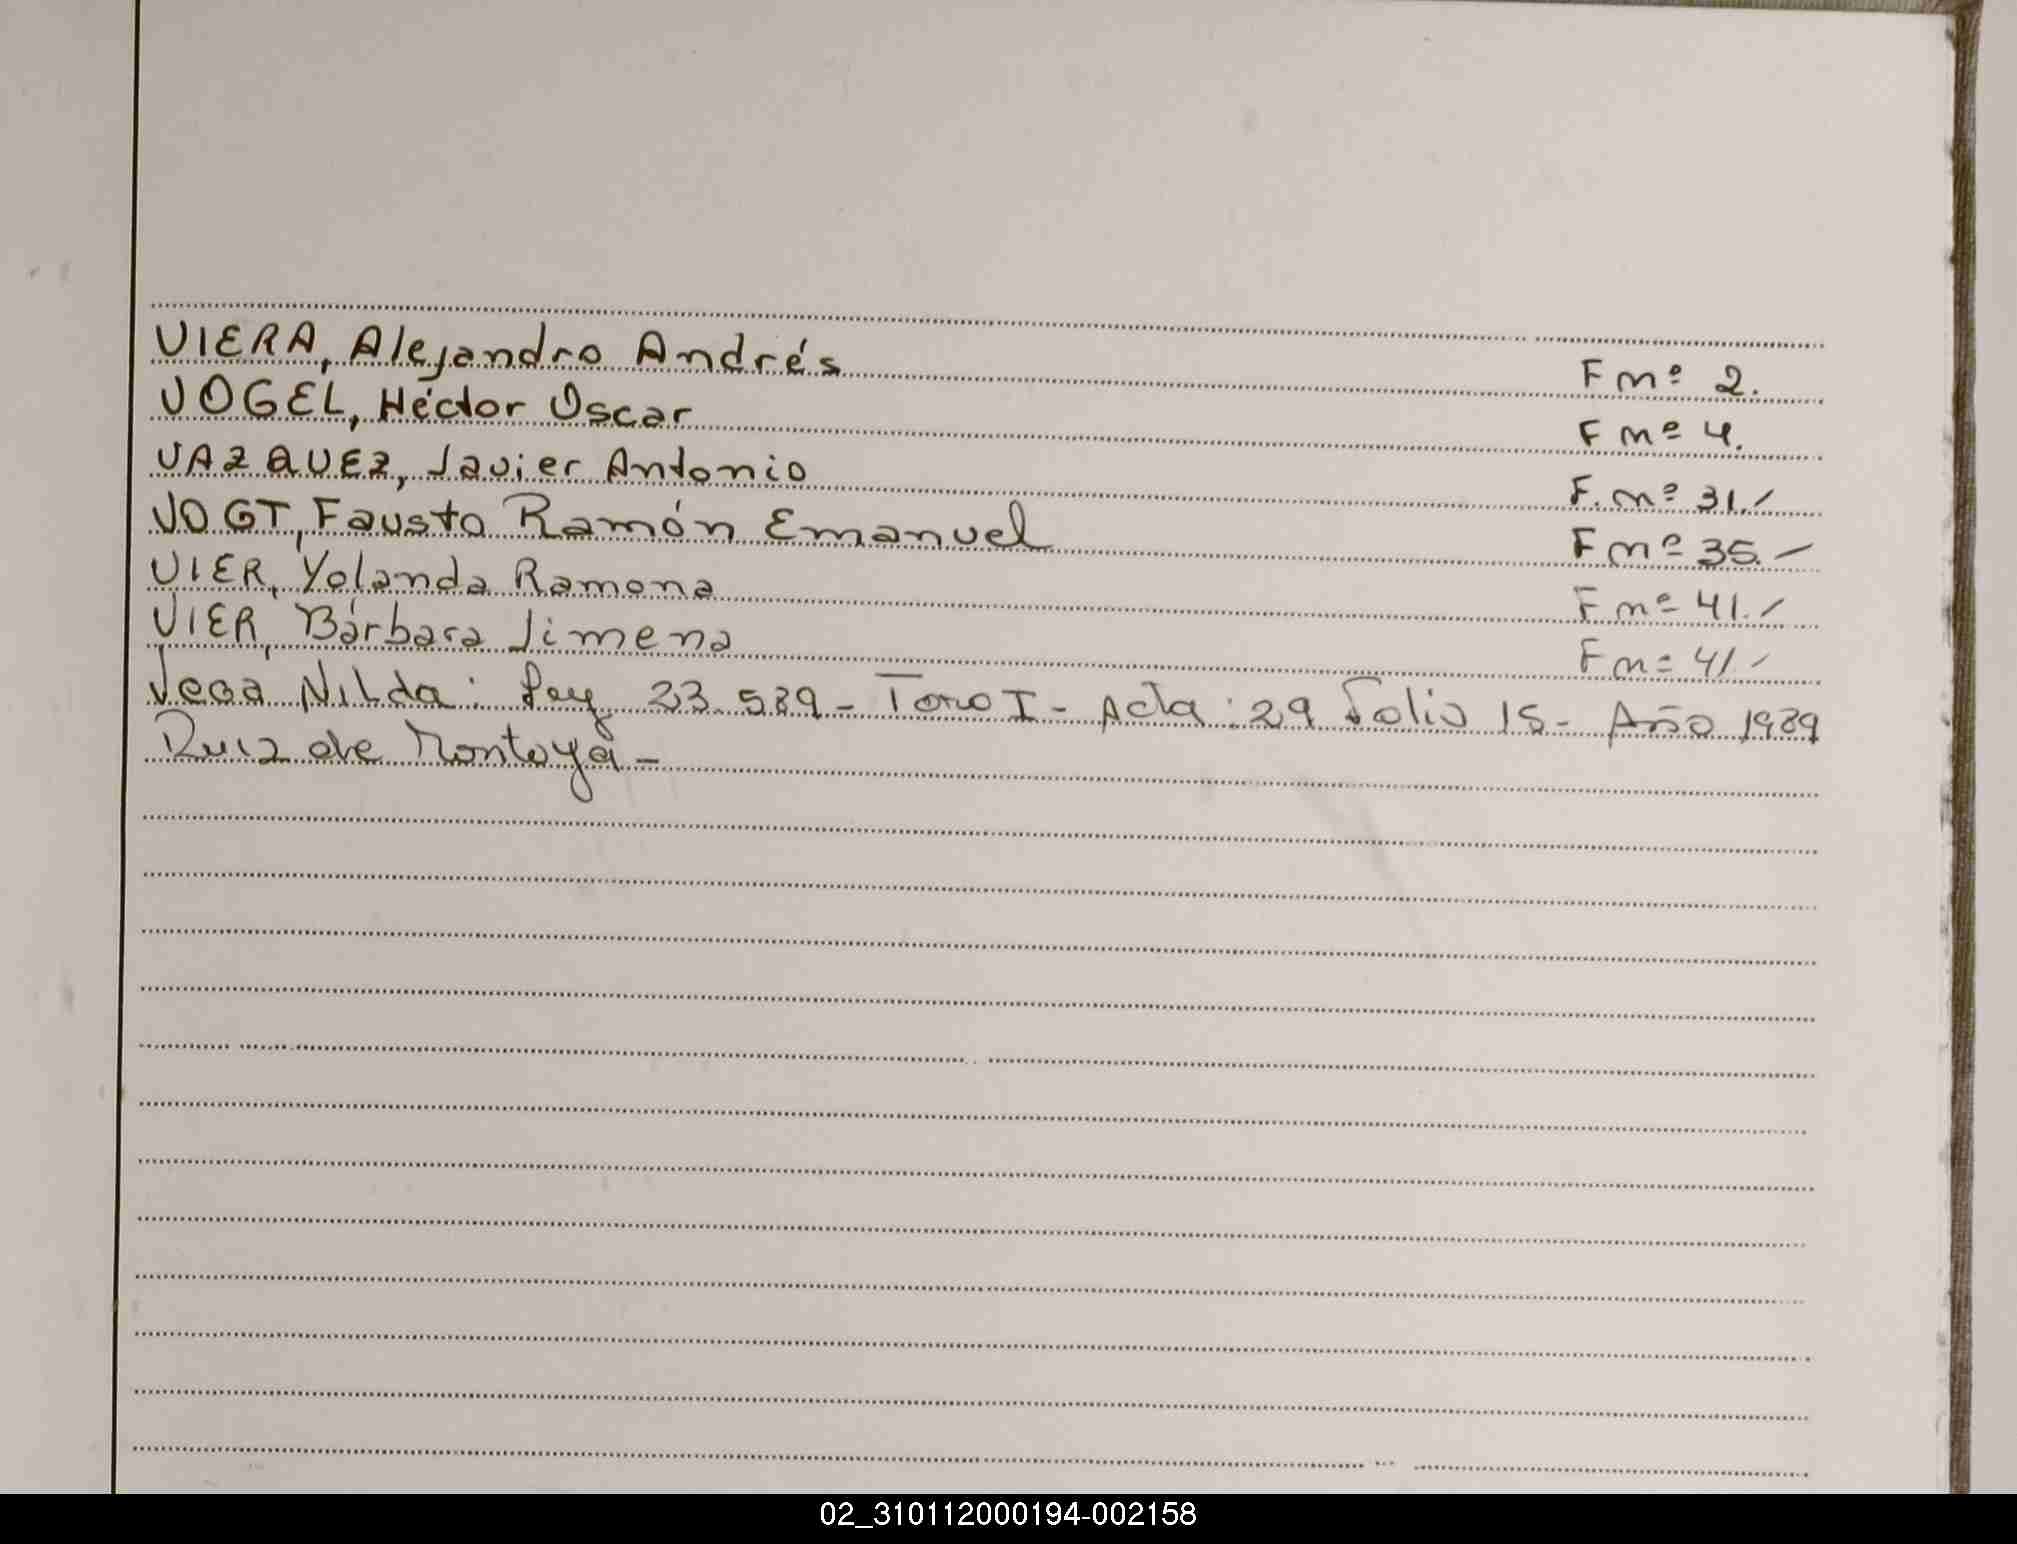 VIERA, Alejandro Andrés F nº 2.
VOGEL, Héctor Oscar F nº 4.
VAZQUEZ, Javier Antonio F. nº 31.-
VOGT, Fausto Ramón Emanuel F nº 35.-
VIER, Yolanda Ramona F nº 41.-
VIER, Bárbara Jimena F nº 41.-
Vega Nilda: Ley 23.539 - Tomo I - Acta: 29 Folio 15 - Año 1989
Ruiz de Montoya -
02_310112000194-002158